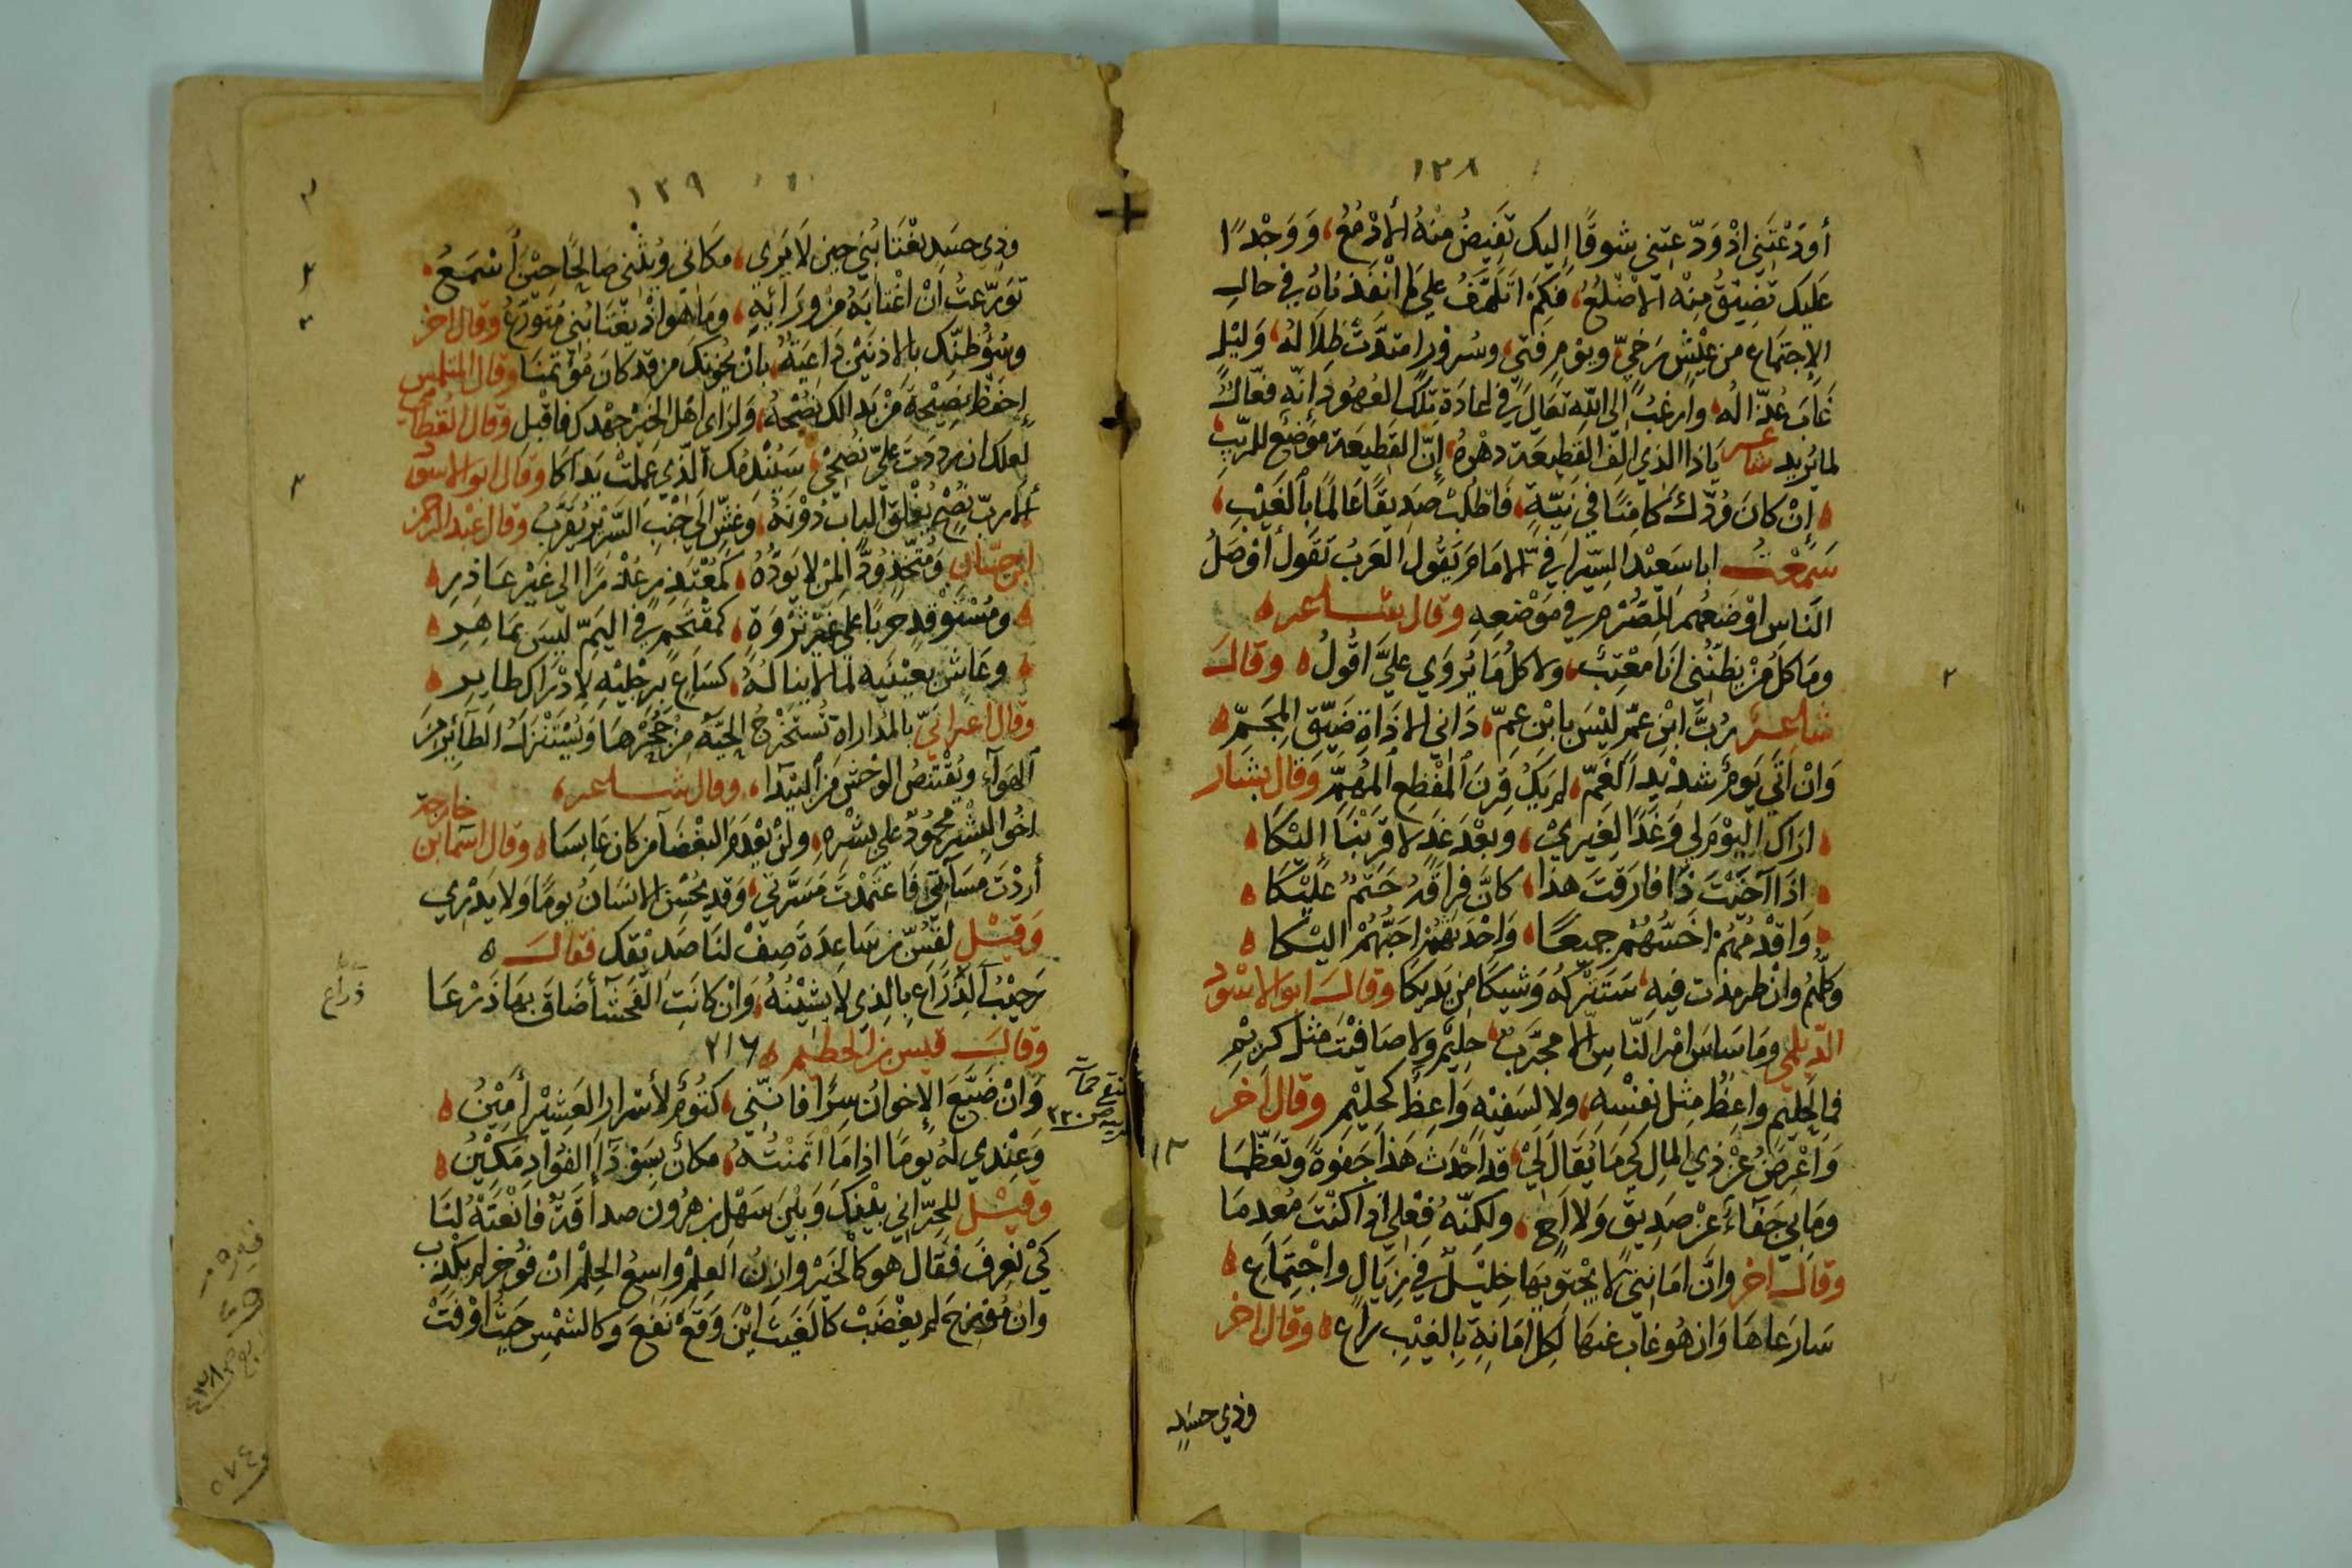 ١٣٨
أودَعْتَني اذْ وَدّعتني شوقًا إليك تَفيضُ منْهُ الأدْمُعُ، وَوَجْدًا
عَليك تضيقُ مِنْه الأضلُعُ، فكم اتَلَهَّفُ على ما انْقَذناهُ في حالِ
الإجتماع من عيْشٍ رَخيّ، ويومٍ فتيّ، وسرورٍ امتدَّت ظِلالهُ، وَليْلٍ
غابَ عُذّالُه، وارغبُ إلى اللّه تعالى في اعادَة تلك العهُود انّه فعّالٌ
لما يُريد شاعر يَاذا الذي الِفَ القَطيعَة دهْرهُ، إنّ القَطيعَة مَوضع للرّيْبِ
إنْ كانَ ودّك كامِنًا في نيّةٍ، فَاطلُبْ صَديقًا عَالمًا بالغَيْبِ
سَمعْتُ ابا سَعيْد السّيرافيّ الامام يَقول العَربُ تقول أفضَلُ
النّاس اوْضَعُهم للصّرْم في مَوْضعِهِ وقال شاعر
ومَا كلّ مَنْ يظنّني انَا معْتِبٌ، ولا كلُّ مَا يُروَي عليَّ اقُولُ وقالَ
شاعرٌ رُبَّ ابْن عمٍّ ليْسَ بابْن عمّ، دَاني الاذَاةِ ضَيّق المجَمِّ
وَانْ اتَي يَومٌ شدْيد الغَمّ، لم يَكُ قِرنَ المفْظِع المُهمِّ وَقال بشار
ارَاك اليوْمَ لي وَغَدًا لِغَيريْ، وبعْدَ غَدٍ لا قرَبَنَا اليْكَا
اذَا آخَيْتَ ذَا فارَقتَ هذا، كانَّ فراقَهُ حَتمٌ عليْكَا
وَاقْدمُهُم اخَسُّهُم جميعًا، وَاحْدَثهُم احَبُّهُمْ اليْكا
وكلّهُمُ وانْ طرمذت فيهِ، سَتَتركُه وَشيكًا من يَديكا وقالَ ابو الاسْود
الدّيلي ومَا سَاسَ امْرَ النّاس الّا مجرَّبٌ، حليمٌ ولا صَافيْتَ مثْل كريْمِ
فما لحليمٍ واعظٌ مثِل نفسِه، ولا لسَفيْهٍ وَاعظٌ كحليْمِ وقال اخَر
وَاعْرِضُ عنْ ذي المال كي مَا يُقَال لي، قد احْدَث هَذا جَفوَةً وتَعَظّمَا
ومَابي جَفَاءٌ عنْ صَديقٍ وَلا اخٍ، ولكنّهُ فِعْلي اذا كنْتَ مُعْدِمَا
وقالَ اخر وانَّ امَانتي لا يحْتويْها خليْلٌ في زيَالٍ واجْتِمَاعِ
سَارعَاهَا وَانْ هُو غاب عَنهَا لكلّ امَانةٍ بالغَيْبِ رَاعِ وقال اخر
وذي حسَد
١٣٩
وذي حسَد يغْتابُني حين لا يَرَي، مكاني ويُثني صالحًا حيْنَ اسْمَعُ
تَورّعتُ انْ اغْتابَهُ مِنْ ورَائه، ومَا هو اذْ يغْتَابُني مُتورّعُ وقال اخر
بانْ يخونَكَ مَن قد كَانَ مُؤتمنَا وقال المتلمس
إحفظْ نصيْحةَ مَنْ بَدا لك نُصْحُهُ، ولرَاى اهْل الخيْر جهْدك فاقْبل وقال القطامي
لعلك ان ردَدتَ عليّ نُصْحي، سَيُنْدمُك الّذي عَملتْ يَداكا وقال ابو الاسود
ألا ربّ نُصْحٍ يُغْلق البابُ دونَهُ، وغشٍّ الى جَنْبِ السّريْر يُقرَّبُ وقال عبْد الرحمن
ابن حسّان ومُتّخذٍ وُدًّا لمنْ لا يَودّهُ، كمُعْتَذِرٍ عُذْرًا الى غيْر عاذِرِ
ومُسْتوقدٍ حربًا على غيْر ثَرْوَةٍ، كمقتَحمٍ في اليَمّ ليسَ بمَاهِرِ
وعَاشٍ بعيْنَيه لما لا ينَالهُ، كسَاعٍ برجْليْهِ لادْراك طايرِ
وقال اعرابيّ بالمُداراة تُستَخْرجُ الحيّة من جُحْرِهَا وَيُسْتَنْزَلُ الطّائر من
الهوَاء ويُقْتَنصُ الوحْش من البَيْدا، وقال شاعر
اخُوا البِشْر محمُودٌ على بشْرهِ، ولنْ يعْدَمَ البغْضَاء مَن كان عَابسَا وقال اسماء بن
خارجة
أردْتَ مَسَآتي فاعتَمدْتَ مَسَرّتي، وَقد يحُسِن الانسَانُ يومًا وَلا يَدْري
وَقيْل لقُسّ بن سَاعِدَة صِفْ لنَا صَديْقك فقالَ
رَحيْبُ الذّرَاعِ بالذي لا يشيْنُهُ، وَانْ كانَتِ الفحشآ ضَاقَ بهَا ذَرْعَا
ذراع
وقالَ قيس بن الخطيم ٢١٦
وَانْ ضَيّعَ الإخوانُ سِرًّا فانّني، كتُومٌ لأسْرار العَشيْر أميْنُ
وَعِنْدي لهُ يومًا اذا مَا ائتمنْتُهُ، مكانٌ بسَوْدَآ الفؤادِ مَكيْنُ
وقيْل للحرّاني بيْنك وَبيْنَ سَهْل بن هرُون صداقَةٌ فانْعَتْهُ لنَا
كيْ نعْرِفَ فقَال هو كالخيْر وازنُ العِلْم واسِعُ الحِلْم انْ فُوخر لم يكْذِب
وانْ مُوزحَ لم يغْضَبْ كالغَيْث ايْنَ وَقعَ نفعَ وكالشمْس حَيْثُ اوْفَتْ